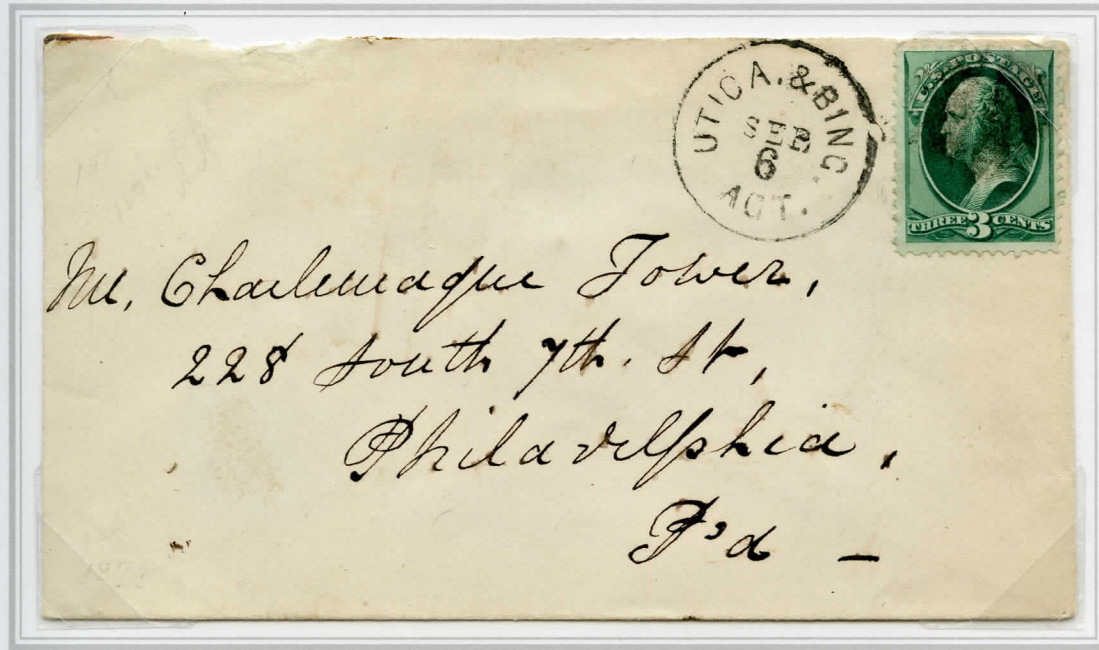 UTICA. & BING.
SEP
6
AGT.
U.S. POSTAGE
THREE 3 CENTS
Mr. Charlemagne Tower,
228 South 7th. St,
Philadelphia,
P'a –